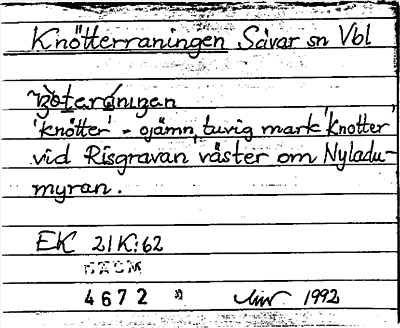 Knötterraningen Sävar sn Vbl
'knötter' - ojämn, tuvig mark 'Knotter'
vid Risgravan väster om Nyladu-
myran.
EK 21K:62
DAUM
4672
1992